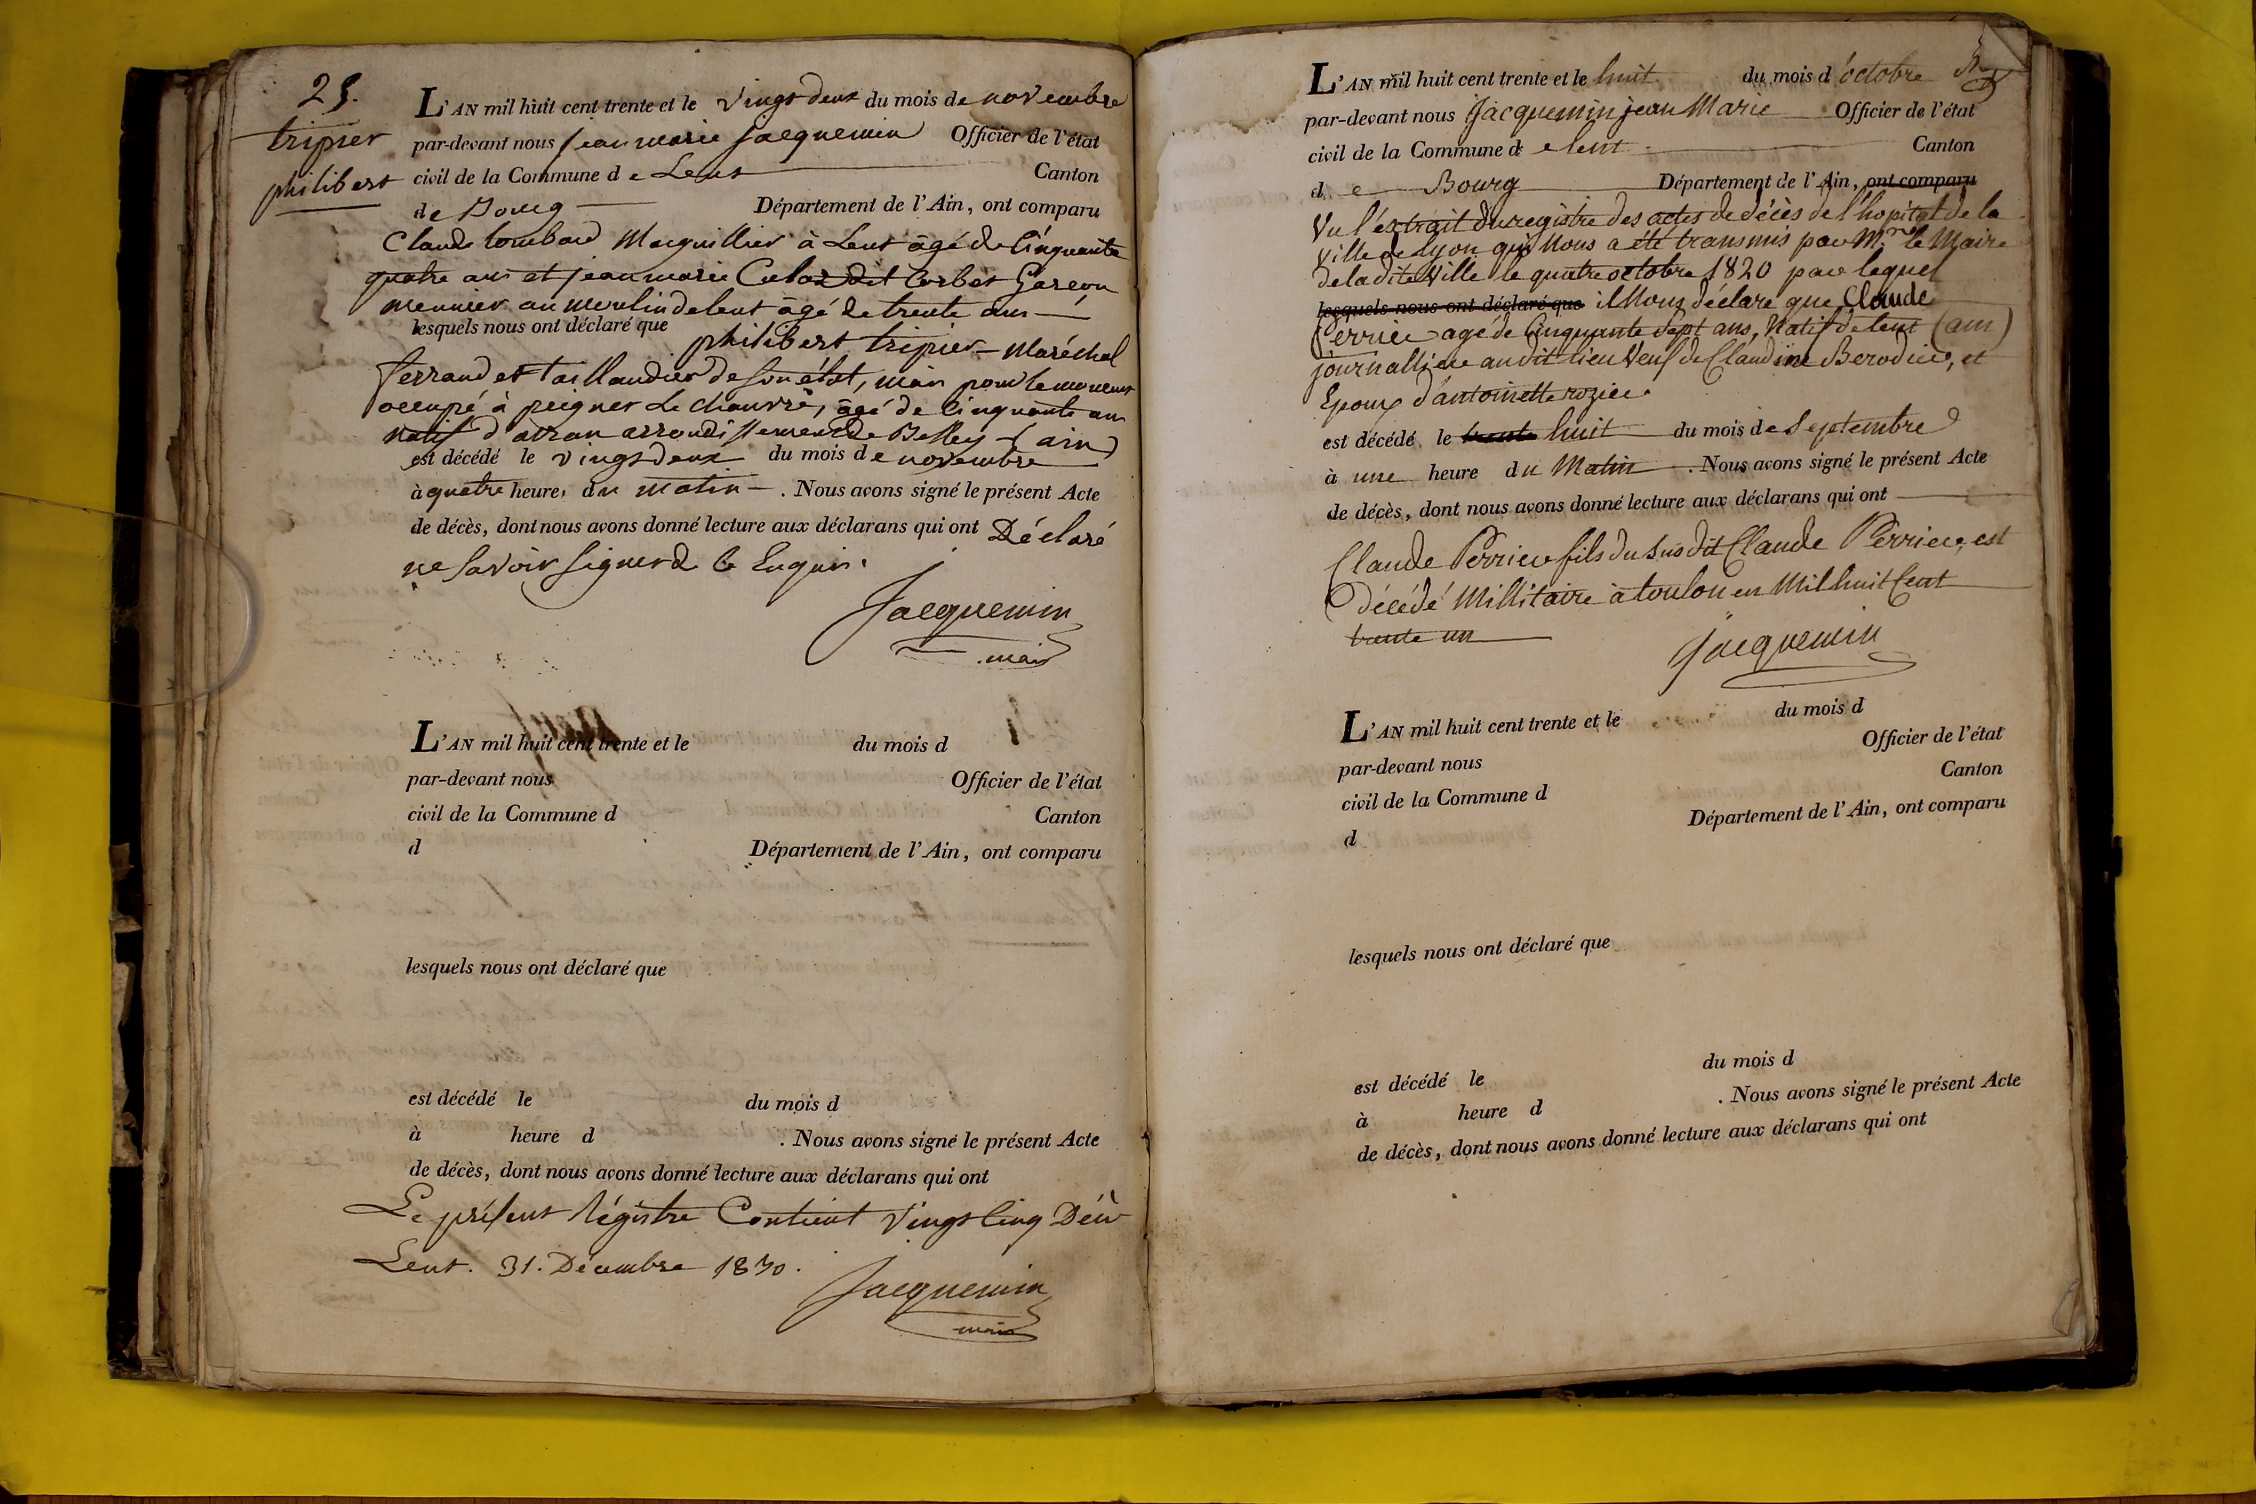 25.
tripier
philibert
L'AN mil huit cent trente et le vingt deux du mois de novembre
par-devant nous jean marie jacquemin Officier de l'état
civil de la Commune de Lent Canton
de Bourg Département de l'Ain, ont comparu
Claude lombard Marguillier à Lent âgé de Cinquante
quatre ans et jean marie dit Garcon
meunier au moulin de lent âgé de trente ans
lesquels nous ont déclaré que philibert tripier maréchal
ferrand et taillandier de son état, mais pour le moment
occupé à peigner le chanvre, âgé de Cinquante ans
natif d' arrondissement de Belley (ain)
est décédé le vingt deux du mois de novembre
à quatre heure, du matin. Nous avons signé le présent Acte
de décès, dont nous avons donné lecture aux déclarans qui ont Déclaré
ne savoir signer de ce Enquis.
Jacquemin
maire
L'AN mil huit cent trente et le du mois d
par-devant nous Officier de l'état
civil de la Commune d Canton
d Département de l'Ain, ont comparu
lesquels nous ont déclaré que
est décédé le du mois d
à heure d . Nous avons signé le présent Acte
de décès, dont nous avons donné lecture aux déclarans qui ont
Le présent Régistre Contient vingt Cinq Décès
Lent. 31. Décembre 1830.
Jacquemin
maire
L'AN mil huit cent trente et le huit du mois d'octobre
par-devant nous Jacquemin jean Marie Officier de l'état
civil de la Commune de lent Canton
de Bourg Département de l'Ain, ont comparu
Vu l'extrait du registre des actes de décès de l'hopital de la
ville de Lyon qui Nous a été transmis par Mr le Maire
de la dite Ville le quatre octobre 1820 par lequel
lesquels nous ont déclaré que il Nous déclare que Claude
Perrier agé de Cinquante sept ans, Natif de lent (ain)
journallier au dit lieu Veuf de Claudine Berodier, et
Epoux d'antoinette rozier
est décédé le trente huit du mois de Septembre
à une heure du Matin. Nous avons signé le présent Acte
de décès, dont nous avons donné lecture aux déclarans qui ont
Claude Perrier fils du susdit Claude Perrier, est
Décédé Millitaire à toulon en Mil huit Cent
trente un
Jacquemin
L'AN mil huit cent trente et le du mois d
par-devant nous Officier de l'état
civil de la Commune d Canton
d Département de l'Ain, ont comparu
lesquels nous ont déclaré que
est décédé le du mois d
à heure d . Nous avons signé le présent Acte
de décès, dont nous avons donné lecture aux déclarans qui ont